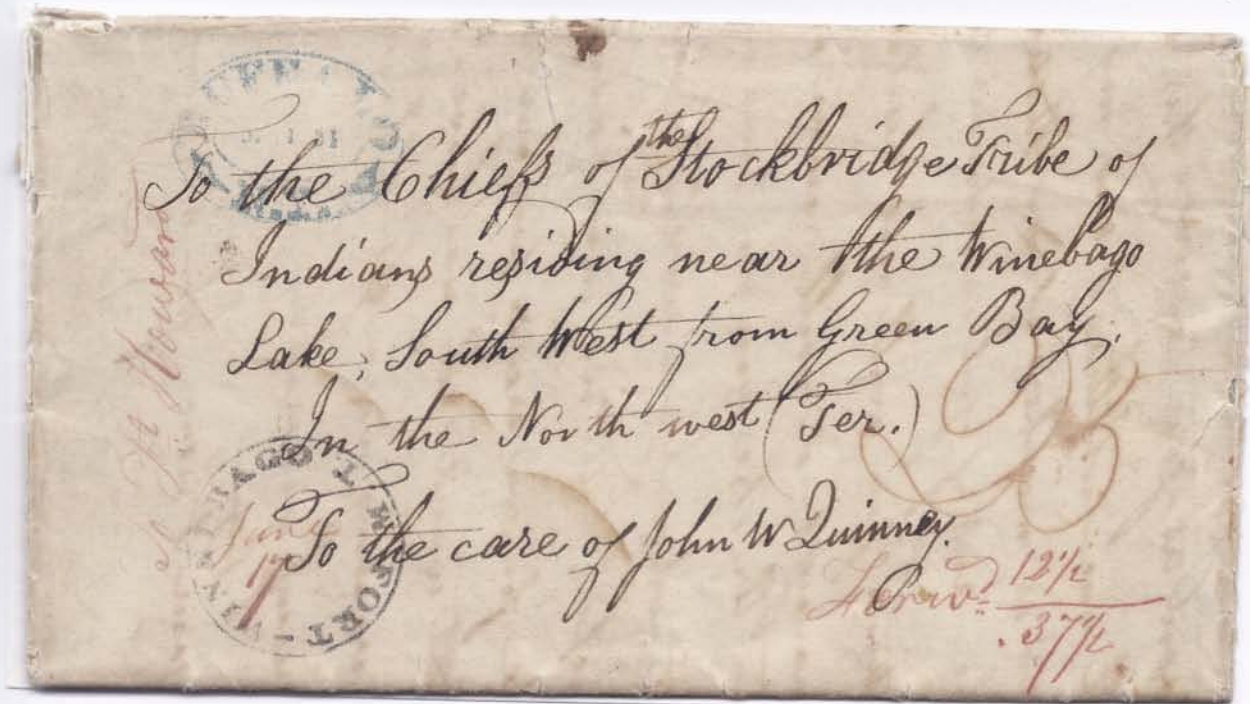 BUFFALO N.Y.
To the Chiefs of the Stockbridge Tribe of
Indians residing near the Winebago
Lake, South West from Green Bay,
In the North west (Ter.)
To the care of John W Quinney.
FORT-WINNEBAGO
June
17
25
Forwd. 12½
.37½